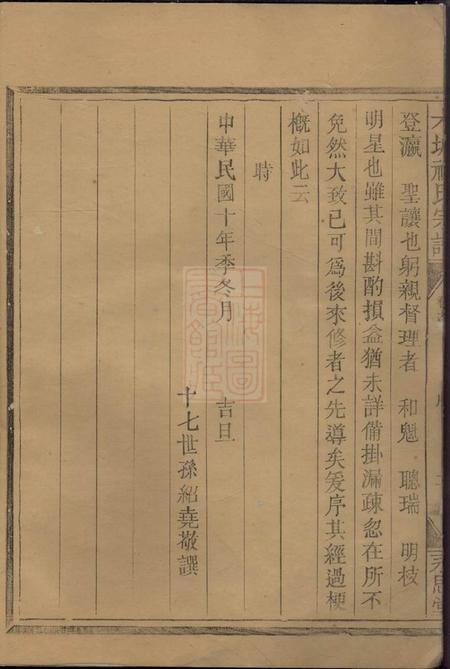 登瀛 聖讓也躬親督理者 和魁 聰瑞 明枝
明星也雖其間斟酌損益猶未詳備掛漏疎忽在所不
免然大致已可爲後來修者之先導矣爰序其經過梗
概如此云
時
中華民國十年季冬月 吉旦
十七世孫紹堯敬譔